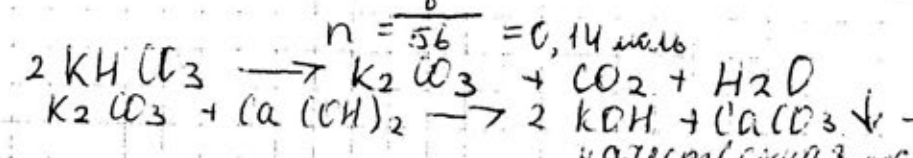 n = 8/56 = 0,14 моль
2 KHCO3 → K2CO3 + CO2 + H2O
K2CO3 + Ca(OH)2 → 2 KOH + CaCO3 ↓ -